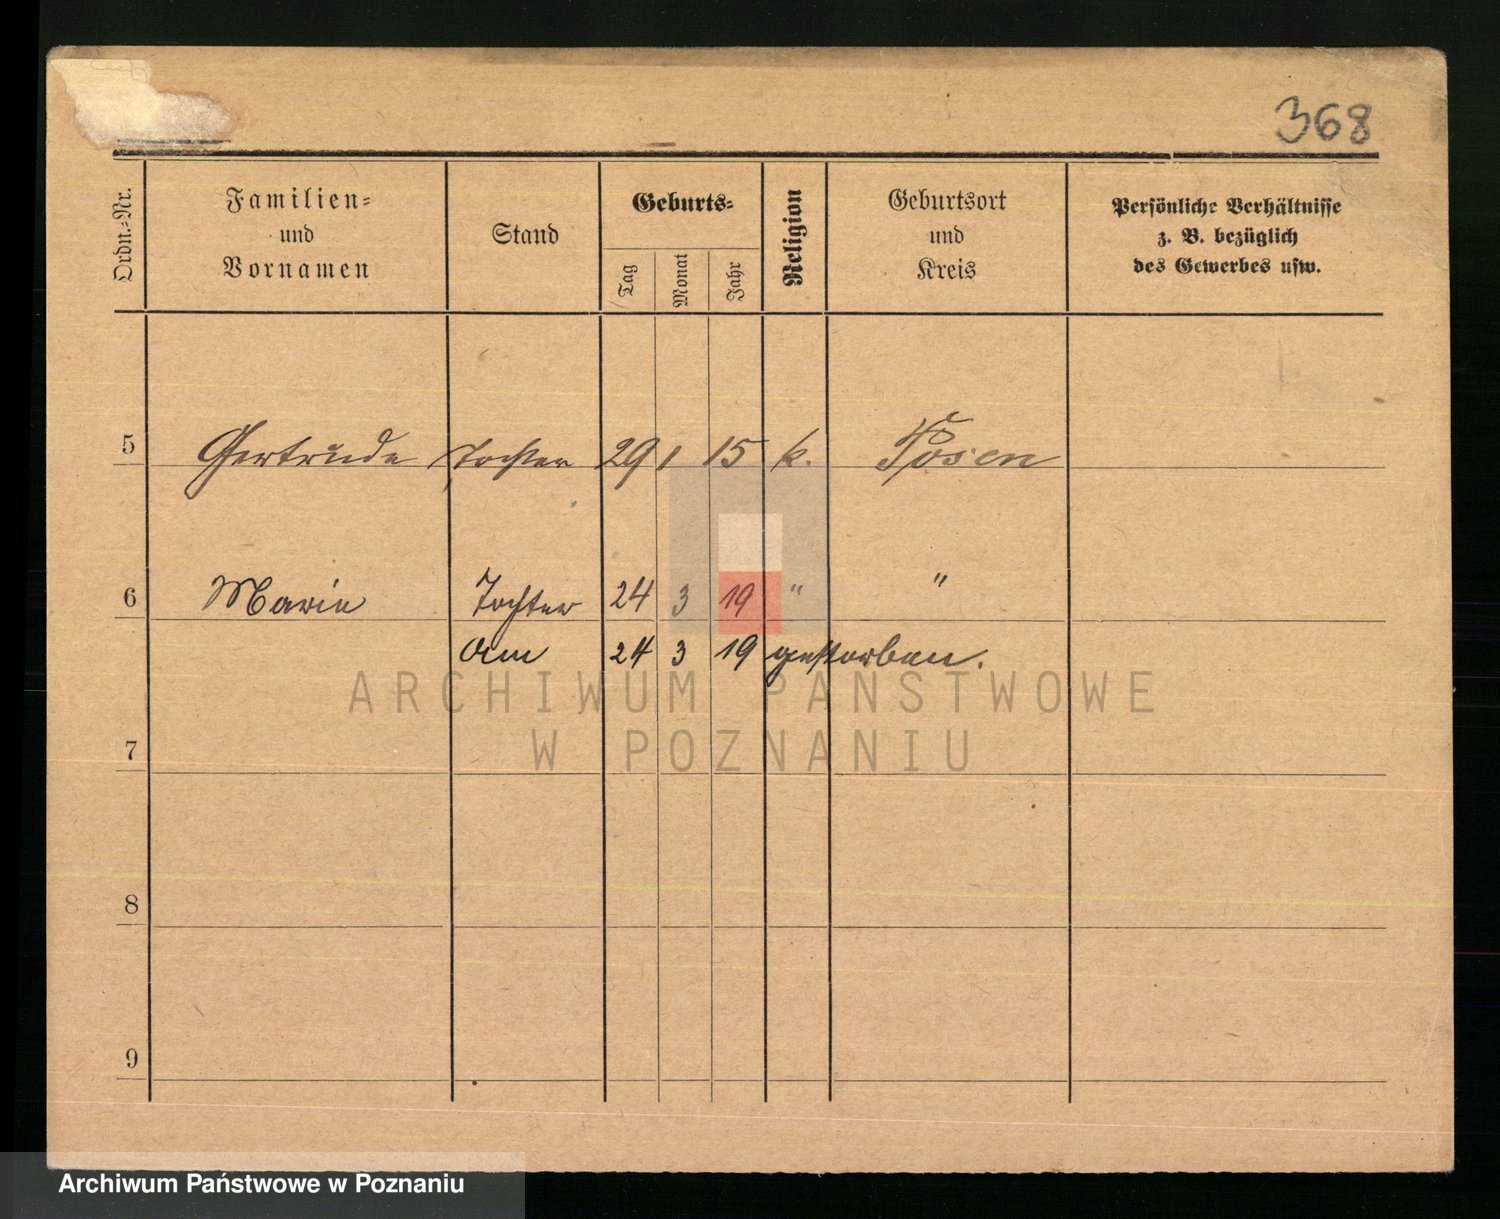 368
Ordn.-Nr.
Familien-
und
Vornamen
Stand
Geburts-
Tag
Monat
Jahr
Religion
Geburtsort
und
Kreis
Persönliche Verhältnisse
z. B. bezüglich
des Gewerbes usw.
5 Gertrude Tochter 29 1 15 k. Posen
6 Marie Tochter 24 3 19 " "
Am 24 3 19 gestorben.
ARCHIWUM PAŃSTWOWE
W POZNANIU
7
8
9
Archiwum Państwowe w Poznaniu